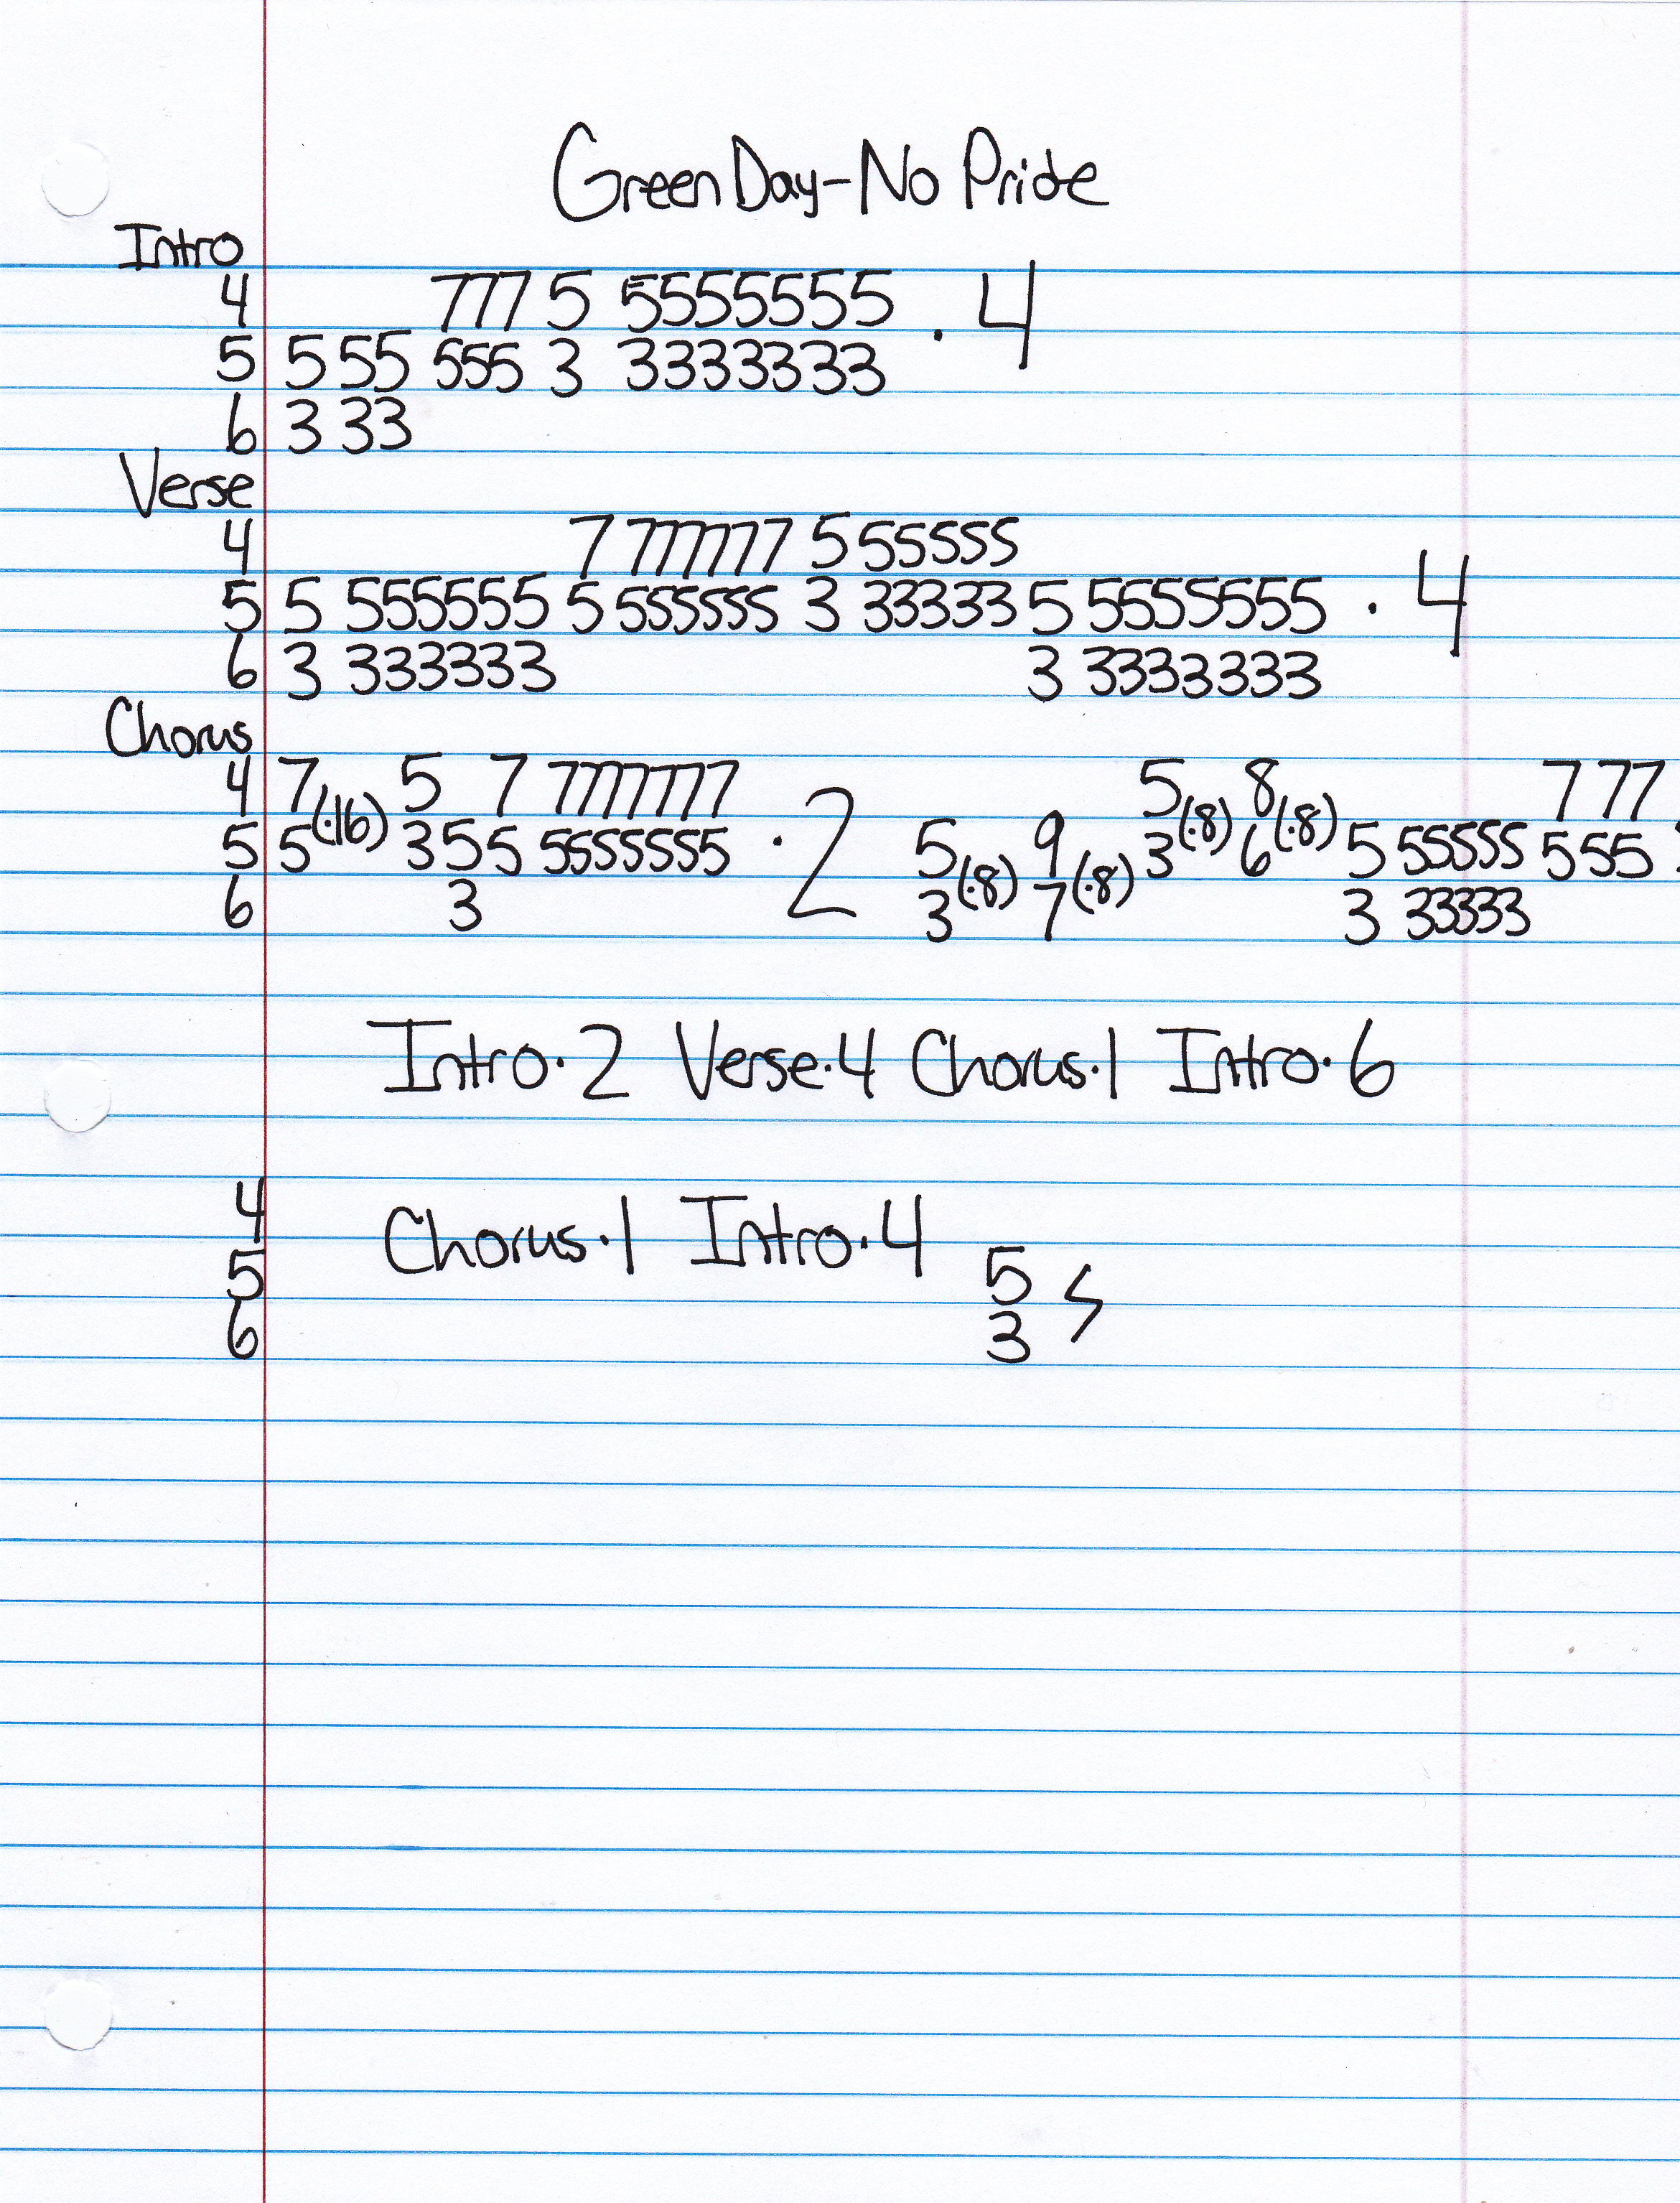 Green Day - No Pride
Intro
4 777 5 5555555 · 4
5 5 55 555 3 3333333
6 3 33
Verse
4 7 777777 5 55555
5 5 555555 5 555555 3 33333 5 5555555 · 4
6 3 333333 3 3333333
Chorus
4 7(·16) 5 7 7777777 · 2 5(·8) 8(·8) 7 77
5 5 3 5 5 5555555 5(·8) 9(·8) 3 6 5 55555 5 55
6 3 3 7 3 33333
Intro·2 Verse·4 Chorus·1 Intro·6
4 Chorus·1 Intro·4
5 5
6 3